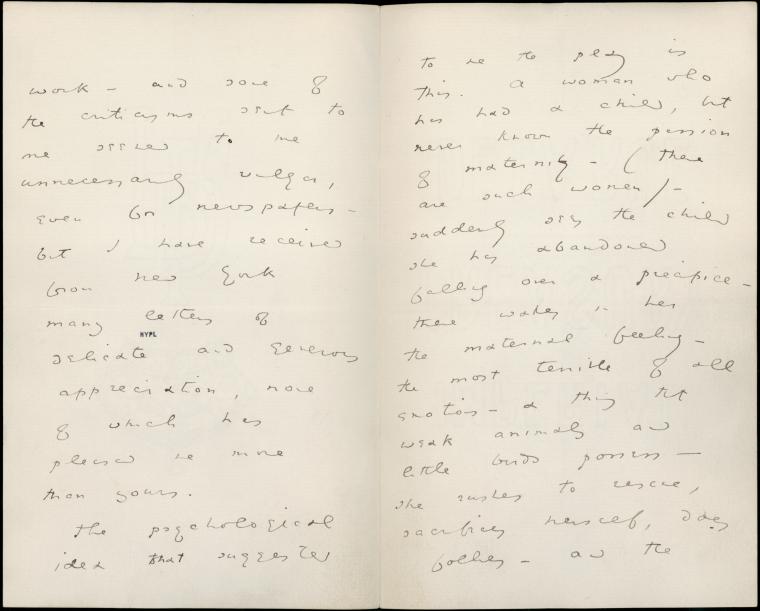 work — and some of
the criticisms sent to
me seemed to me
unnecessarily vulgar,
even for newspapers —
but I have received
from New York
many letters of
NYPL
delicate and generous
appreciation, none
of which has
pleased me more
than yours.
The psychological
idea that suggested
to me the play is
this. A woman who
has had a child, but
never known the passion
of maternity — (there
are such women) —
suddenly sees the child
she has abandoned
falling over a precipice —
there wakes in her
the maternal feeling —
the most terrible of all
emotions — a thing that
weak animals and
little birds possess —
she rushes to rescue,
sacrifices herself, does
follies — and the